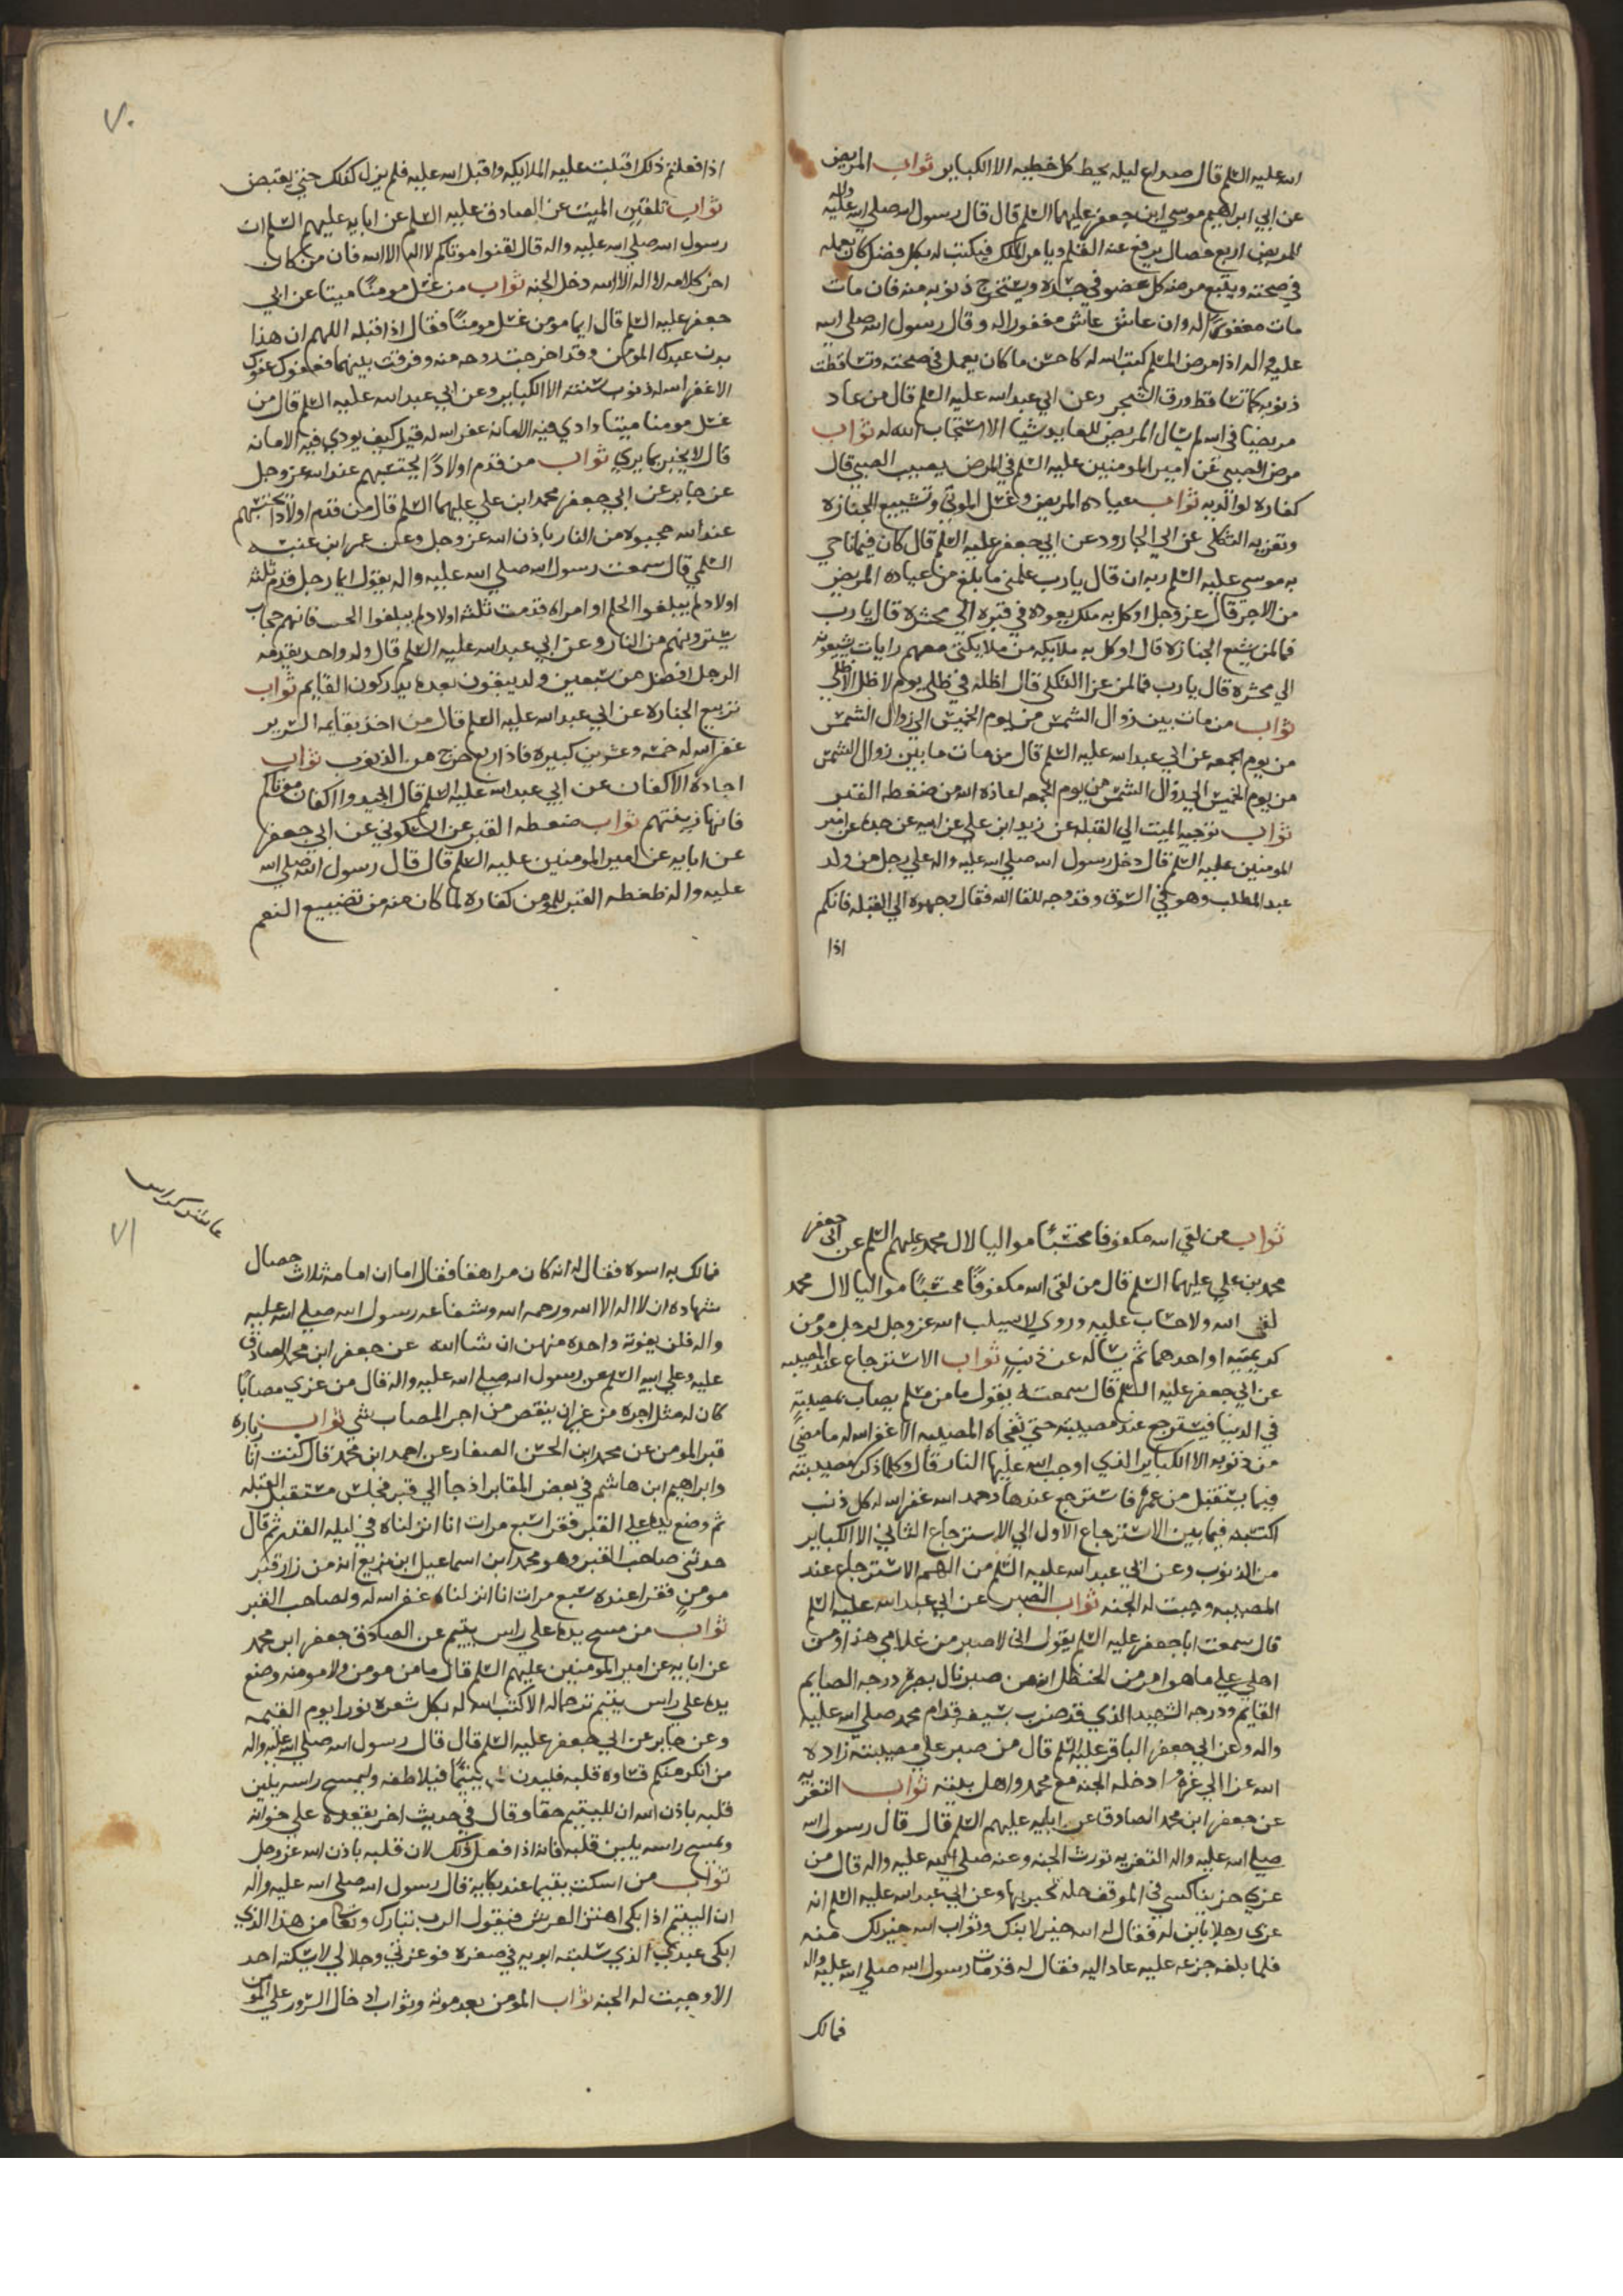 الله عليه السلم قال صداع ليله يحط كل خطيه الا الكباير ثواب المريض
عن ابي ابراهيم موسي ابن جعفر عليهما السلم قال قال رسول الله صلي الله عليه واله
للمريض اربع خصال يرفع عنه القلم ويامر الله الملك فيكتب له بكل فضل كان يعمله
في صحته ويتبع مرضه كل عضو في جسده ويستخرج ذنوبه منه فان مات
مات مغفورًا له وان عاش عاش مغفورا له وقال رسول الله صلي الله
عليه واله اذا مرض المسلم كتب الله له كاحسن ما كان يعمل في صحته وتساقطت
ذنوبه كما تساقط ورق الشجر وعن ابي عبد الله عليه السلم قال من عاد
مريضًا في الله لم يسال المريض للعايد شيا الا استجاب الله له ثواب
مرض الصبي عن امير المومنين عليه السلم في المرض يصيب الصبي قال
كفاره لوالديه ثواب عياده المريض وغسل الموتي وتشييع الجنازه
وتعزيه الثكلي عن ابي الجارود عن ابي جعفر عليه السلم قال كان فيما ناجي
به موسي عليه السلم ربه ان قال يا رب علمني ما بلغ من عياده المريض
من الاجر قال عز وجل اوكل به ملك يعوده في قبره الي محشره قال يا رب
فما لمن شيع الجنازه قال اوكل به ملايكه من ملايكتي معهم رايات يشيعونه
الي محشره قال يا رب فما لمن عزا الثكلي قال اظله في ظلي يوم لا ظل الا ظلي
ثواب من مات بين زوال الشمس من يوم الخميس الي زوال الشمس
من يوم الجمعه عن ابي عبد الله عليه السلم قال من مات ما بين زوال الشمس
من يوم الخميس الي زوال الشمس من يوم الجمعه اعاذه الله من ضغطه القبر
ثواب توجيه الميت الي القبله عن زيد ابن علي عن ابيه عن جده عن امير
المومنين عليه السلم قال دخل رسول الله صلي الله عليه واله علي رجل من ولد
عبد المطلب وهو في السوق وقد وجه للقا الله فقال وجهوه الي القبله فانكم
اذا
٧٠
اذا فعلتم ذلك اقبلت عليه الملايكه واقبل الله عليه فلم يزل كذلك حتي يقبض
ثواب تلقين الميت عن الصادق عليه السلم عن ابايه عليهم السلم ان
رسول الله صلي الله عليه واله قال لقنوا موتاكم لا اله الا الله فان من كان
اخر كلامه لا اله الا الله دخل الجنه ثواب من غسل مومنًا ميتا عن ابي
جعفر عليه السلم قال ايما مومن غسل مومنًا فقال اذا قبله اللهم ان هذا
بدن عبدك المومن وقد اخرجت روحه منه وفرقت بينهما فعفوك عفوك
الا غفر الله له ذنوب سنته الا الكباير وعن ابي عبد الله عليه السلم قال من
غسل مومنا ميتا وادي فيه الامانه غفر الله له قيل كيف يودي فيه الامانه
قال لا يخبر بما يري ثواب من قدم اولادًا يحتسبهم عند الله عز وجل
عن جابر عن ابي جعفر محمد ابن علي عليهما السلم قال من قدم اولادًا يحتسبهم
عند الله حجبوه من النار باذن الله عز وجل وعن عمر ابن عنبسه
السلمي قال سمعت رسول الله صلي الله عليه واله يقول ايما رجل قدم ثلثه
اولاد لم يبلغوا الحلم او امراه قدمت ثلثه اولاد لم يبلغوا الحنث فانهم حجاب
يسترونهم من النار وعن ابي عبد الله عليه السلم قال ولد واحد يقدمه
الرجل افضل من سبعين ولد يبقون بعده يدركون القايم ثواب
تربيع الجنازه عن ابي عبد الله عليه السلم قال من اخذ بقايمه السرير
غفر الله له خمسه وعشرين كبيره فاذا ربع خرج من الذنوب ثواب
اجاده الاكفان عن ابي عبد الله عليه السلم قال اجيدوا اكفان موتاكم
فانها زينتهم ثواب ضغطه القبر عن السكوني عن ابي جعفر
عن ابايه عن امير المومنين عليه السلم قال قال رسول الله صلي الله
عليه واله ضغطه القبر للمومن كفاره لما كان منه من تضييع النعم
ثواب من لقي الله مكفوفا محتسبًا مواليا لال محمد عليهم السلم عن ابي جعفر
محمد بن علي عليهما السلم قال من لقي الله مكفوفًا محتسبًا مواليا لال محمد
لقي الله ولا حساب عليه وروي لا يسلب الله عز وجل لرجل مومن
كريمتيه او احدهما ثم يساله عن ذنب ثواب الاسترجاع عند المصيبه
عن ابي جعفر عليه السلم قال سمعته يقول ما من مسلم يصاب بمصيبةٍ
في الدنيا فيسترجع عند مصيبته حتي تفجاه المصيبه الا غفر الله له ما مضي
من ذنوبه الا الكباير الذي اوجب الله عليها النار قال وكلما ذكر مصيبته
فيما يستقبل من عمره فاسترجع عندها وحمد الله غفر الله له كل ذنب
اكتسبه فيما بين الاسترجاع الاول الي الاسترجاع الثاني الا الكباير
من الذنوب وعن ابي عبد الله عليه السلم من الهم الاسترجاع عند
المصيبه وجبت له الجنه ثواب الصبر عن ابي عبد الله عليه السلم
قال سمعت ابا جعفر عليه السلم يقول اني لاصبر من غلامي هذا ومن
اهلي علي ما هو امر من الحنظل انه من صبر نال بصبره درجه الصايم
القايم ودرجه الشهيد الذي قد ضرب بسيفه قدام محمد صلي الله عليه
واله وعن ابي جعفر الباقر عليه السلم قال من صبر علي مصيبته زاده
الله عزا الي عزه وادخله الجنه مع محمد واهل بيته ثواب التعزيه
عن جعفر ابن محمد الصادق عن ابايه عليهم السلم قال قال رسول الله
صلي الله عليه واله التعزيه تورث الجنه وعنه صلي الله عليه واله قال من
عزي حزينا كسي في الموقف حله يحبر بها وعن ابي عبد الله عليه السلم انه
عزي رجلا بابن له فقال له الله خير لابنك وثواب الله خير لك منه
فلما بلغه جزعه عليه عاد اليه فقال له قد مات رسول الله صلي الله عليه واله
فمالك
٧١
فمالك به اسوه فقال له انه كان مراهقا فقال اما ان امامه ثلاث خصال
شهاده ان لا اله الا الله ورحمه الله وشفاعه رسول الله صلي الله عليه
واله فلن يفوته واحده منهن ان شا الله عن جعفر ابن محمد الصادق
عليه وعلي ابيه السلم عن رسول الله صلي الله عليه واله قال من عزي مصابًا
كان له مثل اجره من غير ان ينقص من اجر المصاب شي ثواب زياره
قبر المومن عن محمد ابن الحسن الصفار عن احمد ابن محمد قال كنت انا
وابراهيم ابن هاشم في بعض المقابر اذ جا الي قبر فجلس مستقبل القبله
ثم وضع يده علي القبر فقرا سبع مرات انا انزلناه في ليله القدر ثم قال
حدثني صاحب القبر وهو محمد ابن اسماعيل ابن بزيع انه من زار قبر
مومن فقرا عنده سبع مرات انا انزلناه غفر الله له ولصاحب القبر
ثواب من مسح يده علي راس يتيم عن الصادق جعفر ابن محمد
عن ابايه عن امير المومنين عليهم السلم قال ما من مومن ولا مومنه وضع
يده علي راس يتيم ترحما له الا كتب الله له بكل شعره نورا يوم القيمه
وعن جابر عن ابي جعفر عليه السلم قال قال رسول الله صلي الله عليه واله
من انكر منكم قساوه قلبه فليدن يتيمًا فيلاطفه وليمسح راسه يلين
قلبه باذن الله ان لليتيم حقا وقال في حديث اخر يقعده علي خوانه
ويمسح راسه يلين قلبه فانه اذا فعل ذلك لان قلبه باذن الله عز وجل
ثواب من اسكت يتيما عند بكايه قال رسول الله صلي الله عليه واله
ان اليتيم اذا بكي اهتز العرش فيقول الرب تبارك وتعالي من هذا الذي
ابكي عبدي الذي سلبته ابويه في صغره فوعزتي وجلالي لا يسكته احد
الا وجبت له الجنه ثواب المومن بعد موته وثواب ادخال السرور علي المومن